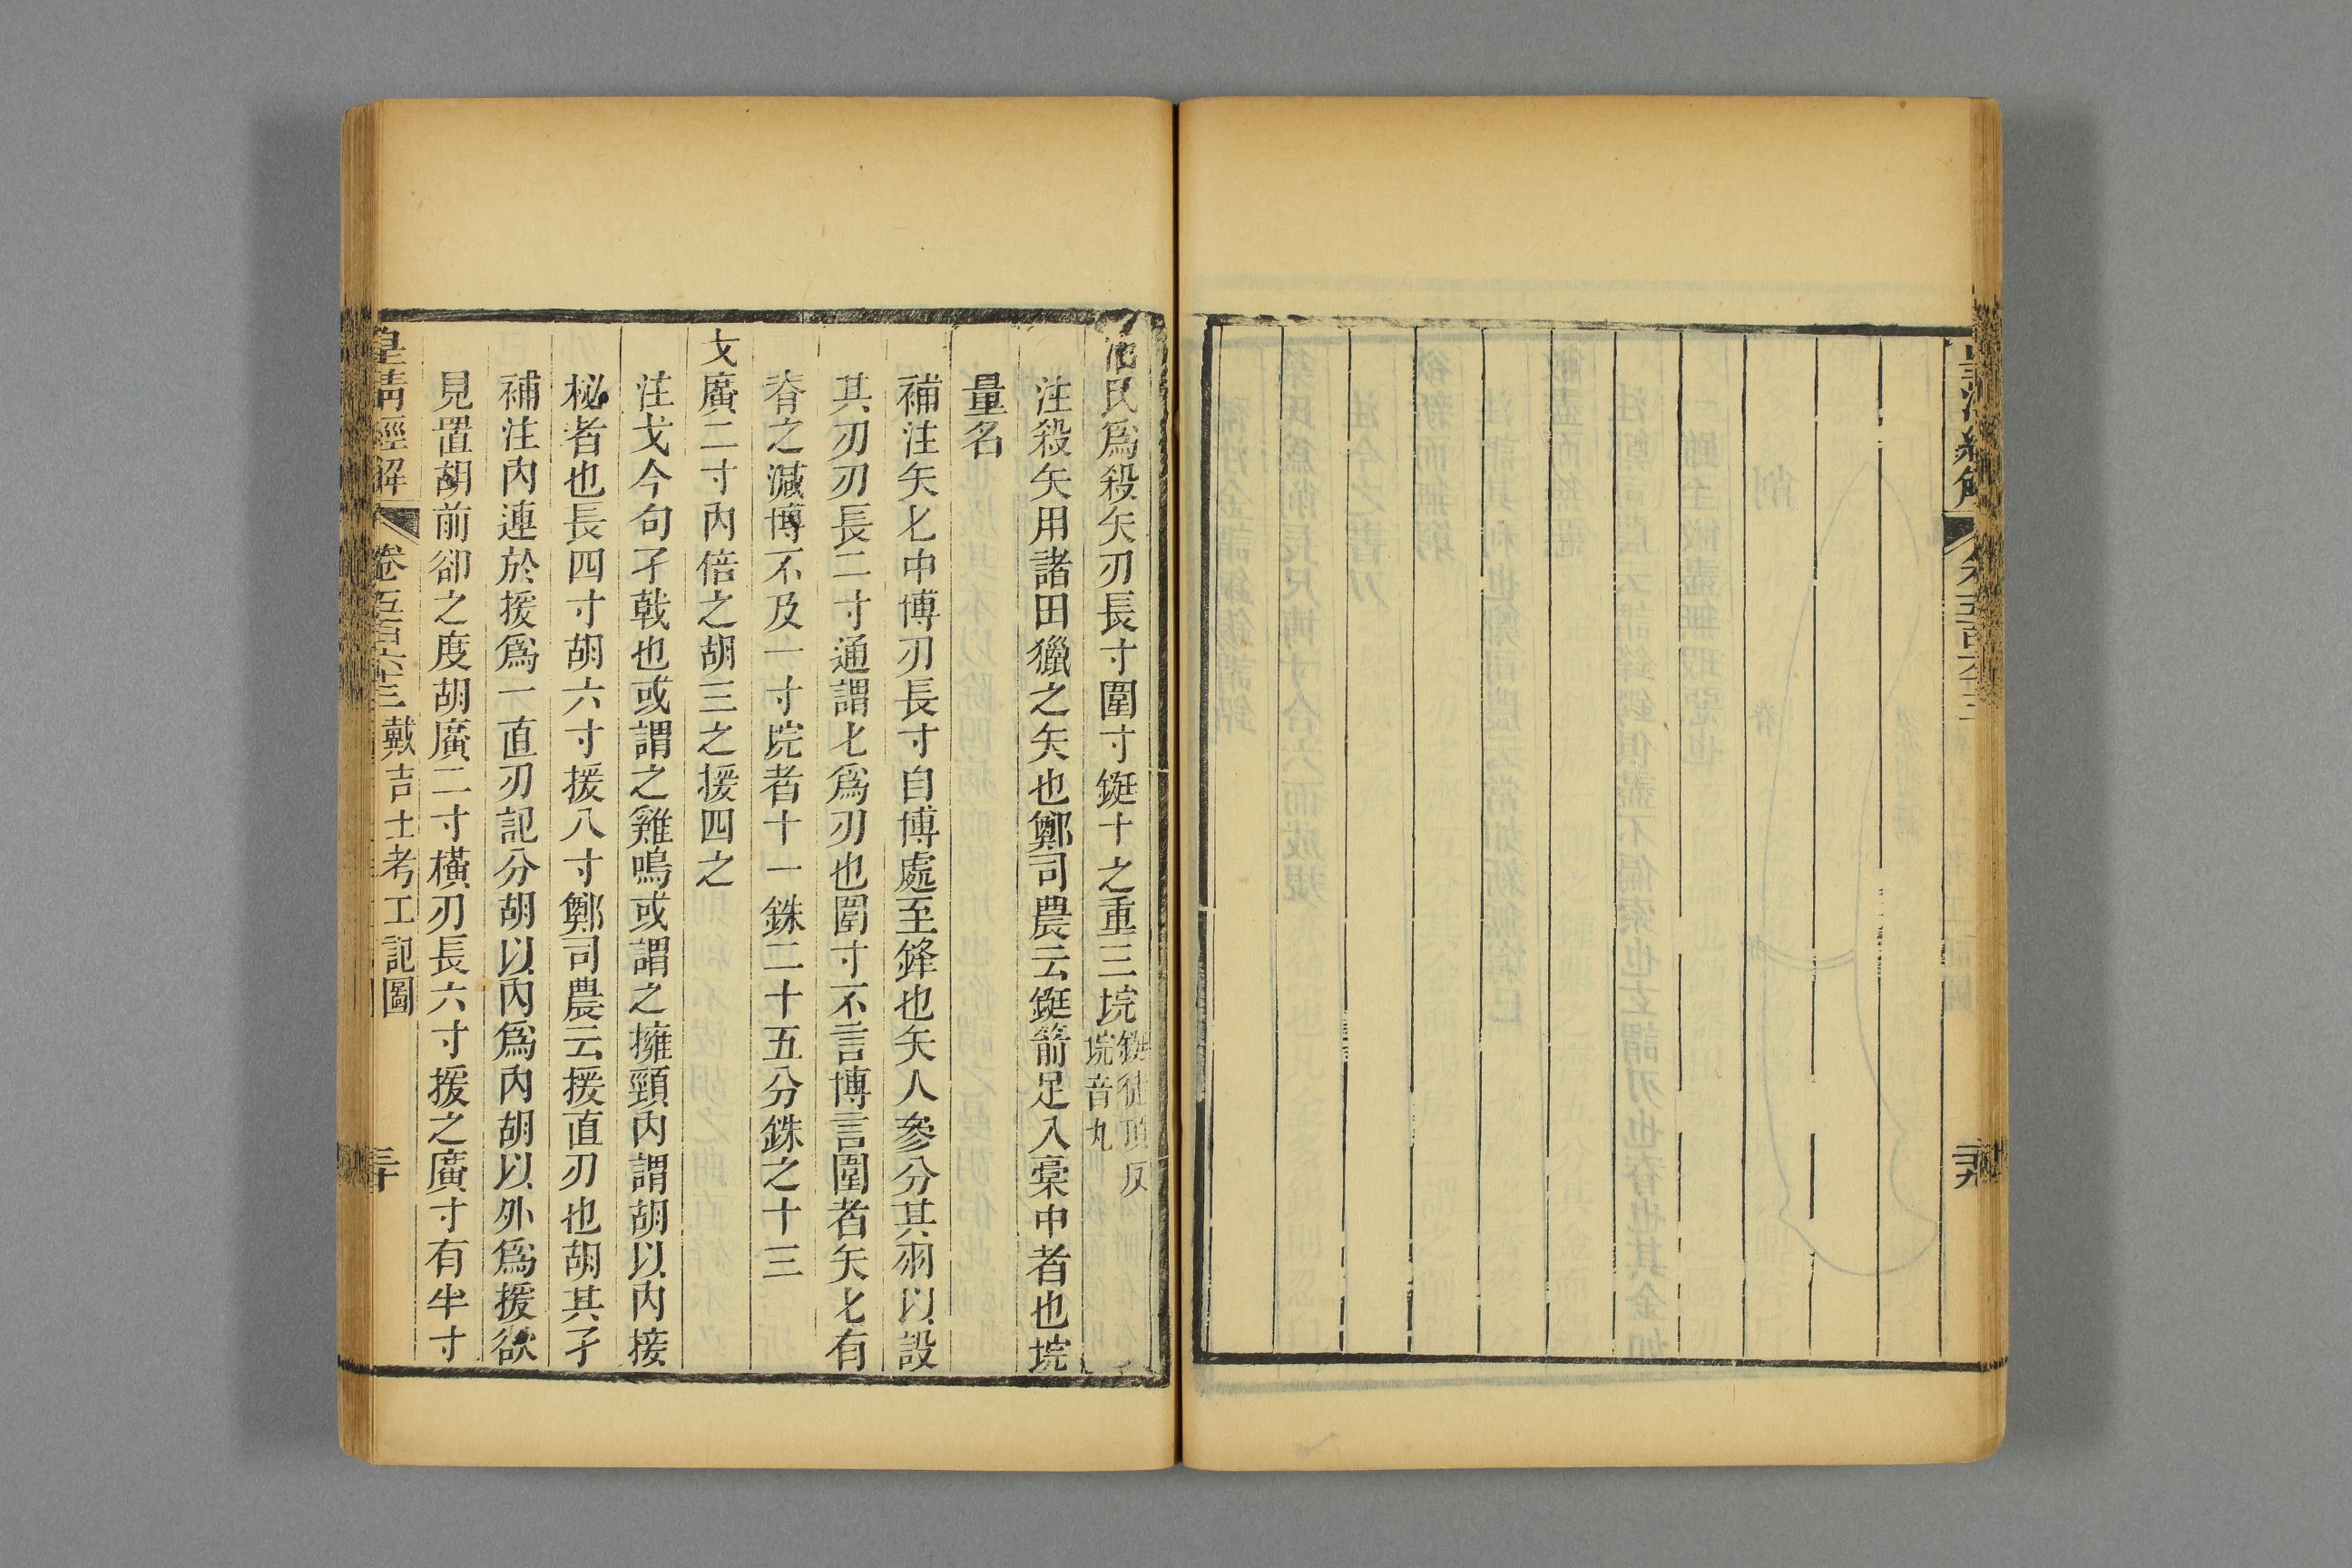 冶氏爲殺矢刃長寸圍寸鋌十之重三垸鋌徒頂反垸音丸
注殺矢用諸田獵之矢也鄭司農云鋌箭足入稾中者也垸
量名
補注矢匕中博刃長寸自博處至鋒也矢人參分其羽以設
其刃刃長二寸通謂匕爲刃也圍寸不言博言圍者矢匕有
脊之減博不及一寸垸者十一銖二十五分銖之十三
戈廣二寸內倍之胡三之援四之
注戈今句孑戟也或謂之雞鳴或謂之擁頸內謂胡以內接
柲者也長四寸胡六寸援八寸鄭司農云援直刃也胡其孑
補注內連於援爲一直刃記分胡以內爲內胡以外爲援欲
見置胡前卻之度胡廣二寸橫刃長六寸援之廣寸有半寸
皇清經解 卷五百六十三 戴吉士考工記圖 三十